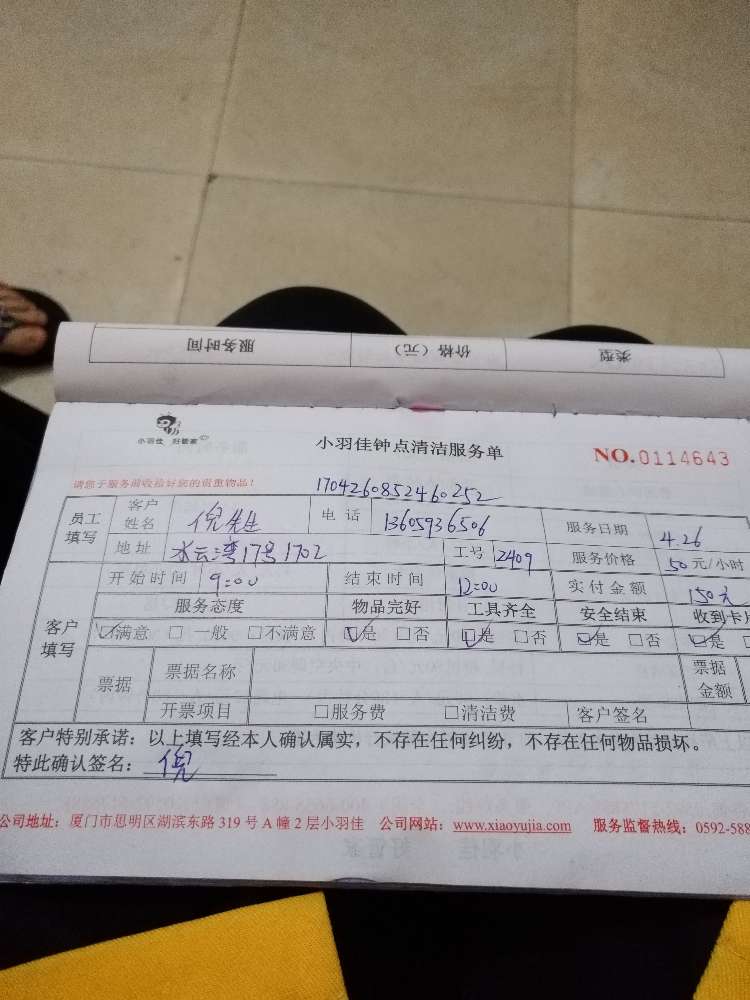 服务时间 价格（元） 类型
小羽佳 好管家
小羽佳钟点清洁服务单
NO.0114643
请您于服务前收捡好您的贵重物品！
1704260852460252
员工填写 客户姓名 倪先生 电话 13605936506 服务日期 4.26
地址 水云湾17号1702 工号 2409 服务价格 50元/小时
客户填写 开始时间 9:00 结束时间 12:00 实付金额 150元
服务态度 物品完好 工具齐全 安全结束 收到卡片
☑满意 □一般 □不满意 ☑是 □否 ☑是 □否 ☑是 □否 ☑是
票据 票据名称 票据金额
开票项目 □服务费 □清洁费 客户签名
客户特别承诺：以上填写经本人确认属实，不存在任何纠纷，不存在任何物品损坏。
特此确认签名：倪
公司地址：厦门市思明区湖滨东路319号A幢2层小羽佳 公司网站：www.xiaoyujia.com 服务监督热线：0592-588